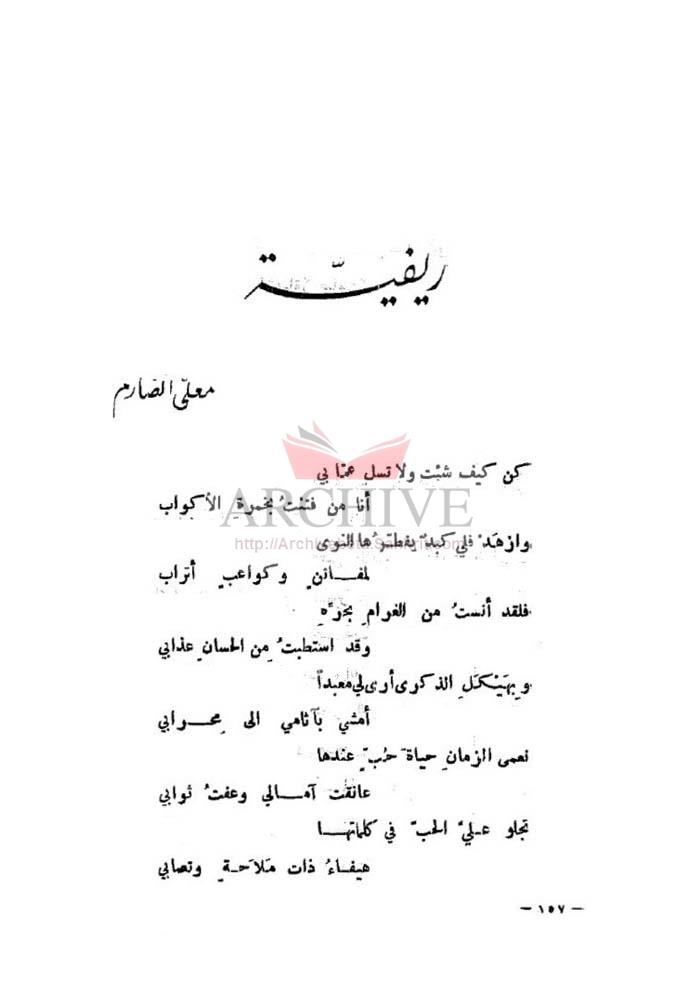 ريفيّة
معلّى الصارم
كن كيف شئت ولا تسل عمّا بي
أنا من فتنتُ بخمرةِ الأكواب
وازهدْ فلي كبدٌ يفطّرُها النوى
لمفاتنٍ وكواعبٍ أتراب
فلقد أنستُ من الغرامِ بحرّهِ
وقد استطبتُ مِن الحسانِ عذابي
وبِهَيْكَلِ الذكرى أرى لي معبداً
أمشي بآثامي الى مِحرابي
نعمى الزمانِ حياةَ حُبٍّ عندها
عانقت آمالي وعفتُ ثوابي
تجلو عليَّ الحبَّ في كلماتها
هيفاءُ ذات مَلاَحةٍ وتصابي
— ١٥٧ —
ARCHIVE